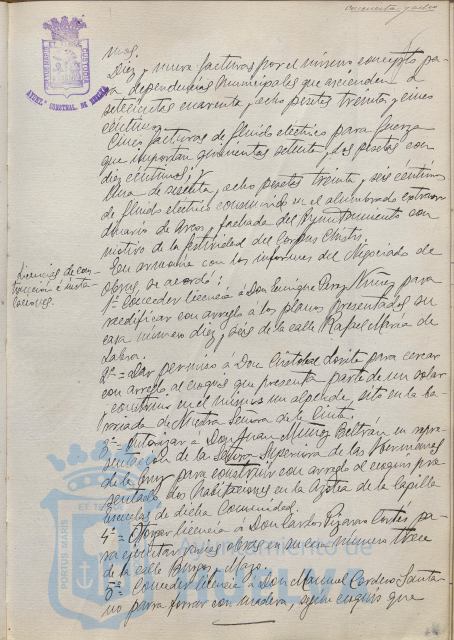 cincuenta y ocho
AYUNT.º CONSTNAL. DE HUELVA
mas.
Diez y nueve facturas por el mismo concepto pa-
ra dependencias Municipales que ascienden a
setecientas cuarenta y ocho pesetas treinta y cinco
céntimos
Cinco facturas de fluido eléctrico para fuerza
que importan quinientas setenta y dos pesetas con
diez céntimos; y
Una de sesenta y ocho pesetas treinta y seis céntimos
de fluido eléctrico consumido en el alumbrado extraor-
dinario de Arcos y fachada del Ayuntamiento con
motivo de la festividad del Corpus Christi.
Licencias de con-
trucción é insta-
laciones.
En armonía con los informes del Negociado de
obras, se acordó:
1º Conceder licencia á Don Enrique Perez Nuñez para
reedificar con arreglo á los planos presentados su
casa número diez y seis de la calle Rafael María de
Labra.
2º = Dar permiso á Don Cristobal para cercar
con arreglo al croquis que presenta parte de un solar
y construir en el mismo un alpende, sito en la ba-
rriada de Nuestra Señora de la Cinta.
3º = Autorizar a Don Juan Muñoz Beltran en repre-
sentación de la Superiora de las Hermanas
de la Cruz para construir con arreglo al croquis pre-
sentado dos habitaciones en la Azotea de la Capilla
Escuelas de dicha Comunidad.
4º = Otorgar licencia á Don Carlos Pizarro Cortes pa-
ra ejecutar varias obras en su casa número trece
de la calle Burgos y Mazo.
5º = Conceder licencia á Don Manuel Cordero Santa-
no para forrar con madera, según croquis que
PORTUS MARIS
ET TERRAE
Ayuntamiento de
HUELVA